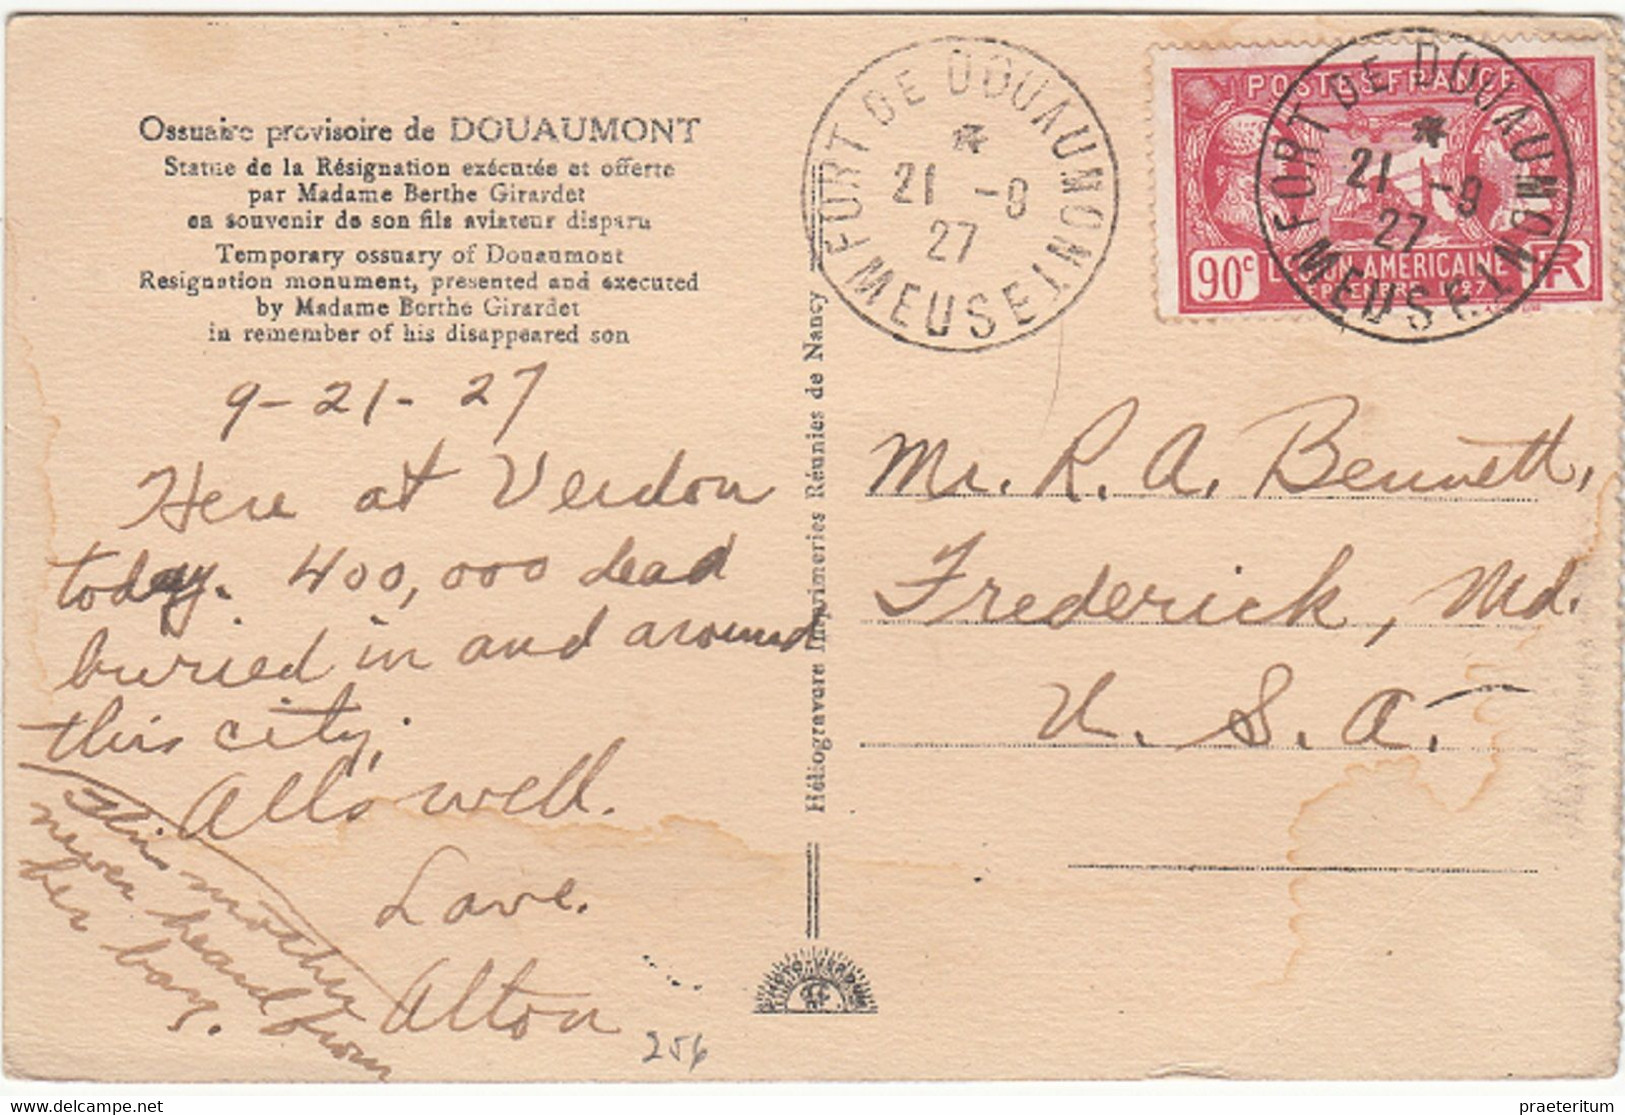 Ossuaire provisoire de DOUAUMONT
Statue de la Résignation exécutée et offerte
par Madame Berthe Girardet
en souvenir de son fils aviateur disparu
Temporary ossuary of Douaumont
Resignation monument, presented and executed
by Madame Berthe Girardet
in remember of his disappeared son
9-21-27
Here at Verdon
today. 400,000 dead
buried in and around
this city.
All's well.
Love.
Alton
This mother
never heard from
her boy.
256
Héliogravure Imprimeries Réunies de Nancy
FORT DE DOUAUMONT
21 -9
27
MEUSE
POSTES FRANCE
90c
LÉGION AMÉRICAINE
SEPTEMBRE 1927
RF
FORT DE DOUAUMONT
21 -9
27
MEUSE
Mr. R. A. Bennett,
Frederick, Md.
U. S. A.
delcampe.net
praeteritum